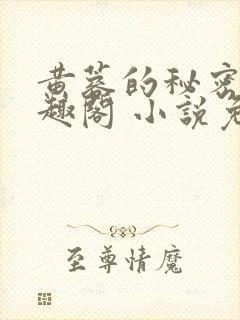 黄蓉的秘密
趣阁 小說免
至尊情魔